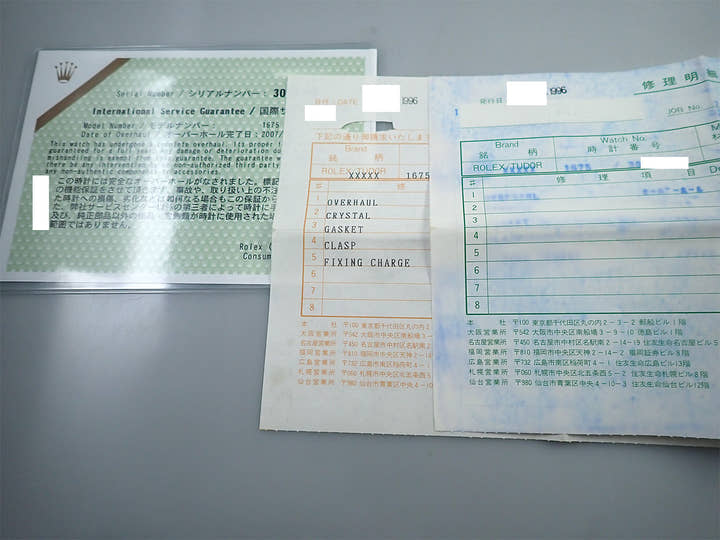 Serial Number / シリアルナンバー： 30
International Service Guarantee / 国際サ
Model Number / モデルナンバー 1675
Date of Overhaul / オーバーホール完了日：2007/
This watch has undergone a complete overhaul. Its proper f
guaranteed for a full
damage or deterioration
mishandling is exempt from this guarantee. The guarantee
there be any intervention by non-authorized third party
any non-authorized components or accessories.
この時計には完全なオーバーホールがなされました。標記
の機能保証をさせて頂きます。事故や、取り扱い上の不注
た時計への損傷、劣化などは如何なる場合もこの保証から
た、弊社サービスセンター以外の第三者によって時計に手
及び、純正部品以外の部品、装飾類が時計に使用された場
範囲ではありません。
Rolex (
Consum
DATE 1996
下記の通り御請求いたします
Brand
銘 柄
ROLEX XXXXX 1675
#
1
2 OVERHAUL
3 CRYSTAL
4 GASKET
5 CLASP
6 FIXING CHARGE
7
8
本 社 〒100 東京都千代田区丸の内2
大阪営業所 〒542 大阪市中央区南船場3
名古屋営業所 〒450 名古屋市中村区名駅南2
福岡営業所 〒810 福岡市中央区天神2-14
広島営業所 〒732 広島市南区稲荷町4-1
札幌営業所 〒060 札幌市中央区北五条西5
仙台営業所 〒980 仙台市青葉区中央4-10
修理明細
発行日 1996
1
JOB No.
Brand Watch No.
銘 柄 時計番号
ROLEX TUDOR 1675
# 修理項目 De
1
2
3
4
5
6
7
8
本 社 〒100 東京都千代田区丸の内2-3-2 郵船ビル1階
大阪営業所 〒542 大阪市中央区南船場3-9-10 徳島ビル1階
名古屋営業所 〒450 名古屋市中村区名駅南2-14-19 住友生命名古屋ビル5
福岡営業所 〒810 福岡市中央区天神2-14-2 福岡証券ビル8階
広島営業所 〒732 広島市南区稲荷町4-1 住友生命広島ビル13階
札幌営業所 〒060 札幌市中央区北五条西5-2 住友生命札幌ビル8階
仙台営業所 〒980 仙台市青葉区中央4-10-3 住友生命仙台ビル12階